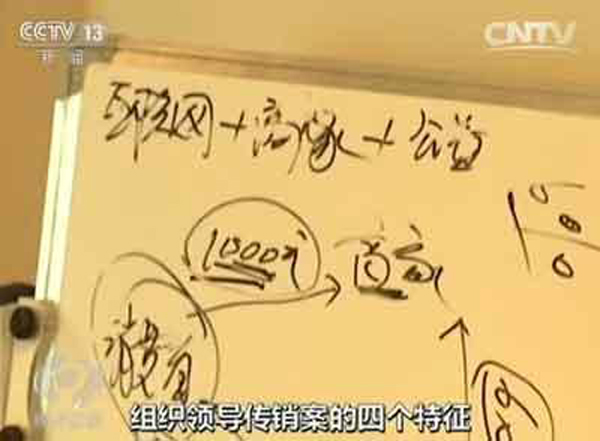 CCTV 13 CNTV
新闻
互联网+商家+公益
10000元 商家
消费者
组织领导传销案的四个特征